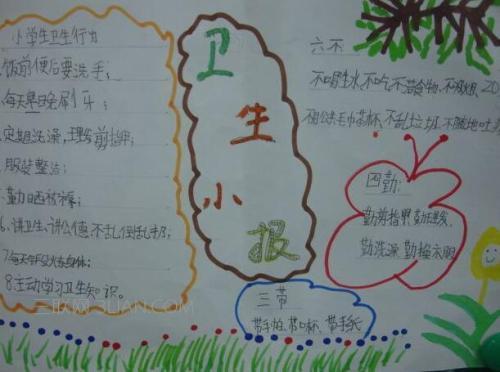 小学生卫生行为
饭前便后要洗手;
每天早晚刷牙;
定期洗澡,理发剪指甲;
服装整洁;
勤晒被褥;
6、讲卫生、讲公德、不乱倒乱扔;
7每天
身体;
8.主动学习卫生知识。
卫生小报
六不
不喝生水,不吃不洁食物,不吸烟,
不用公共毛巾茶杯,不乱扔垃圾,不随地吐
四勤:
勤剪指甲勤理发
勤洗澡 勤换衣服
三带
带手帕,带口杯、带手纸